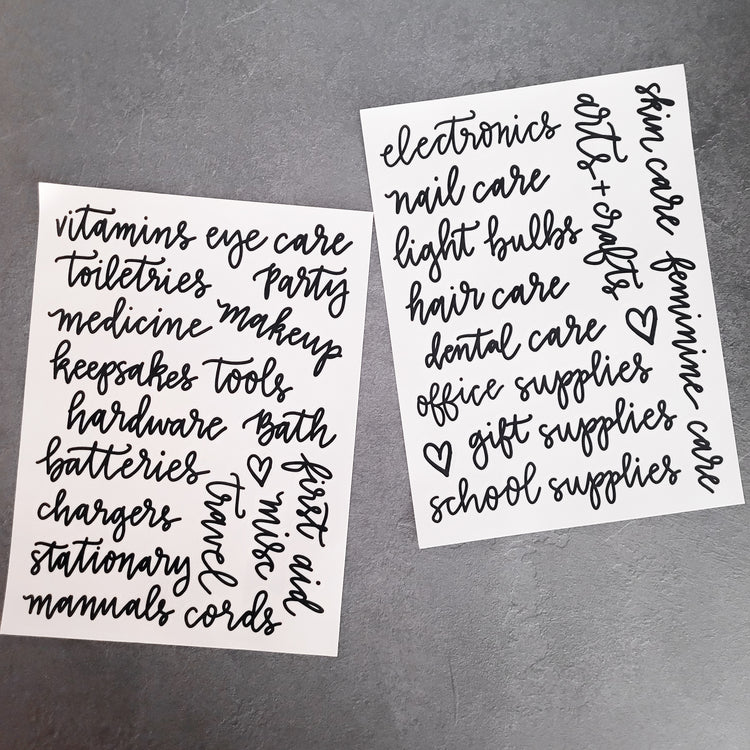 vitamins eye care
toiletries Party
medicine makeup
keepsakes tools
hardware Bath
batteries
chargers
stationary
manuals cords
travel
misc
first aid
electronics
nail care
light bulbs
hair care
dental care
office supplies
gift supplies
school supplies
arts + crafts
skin care
feminine care